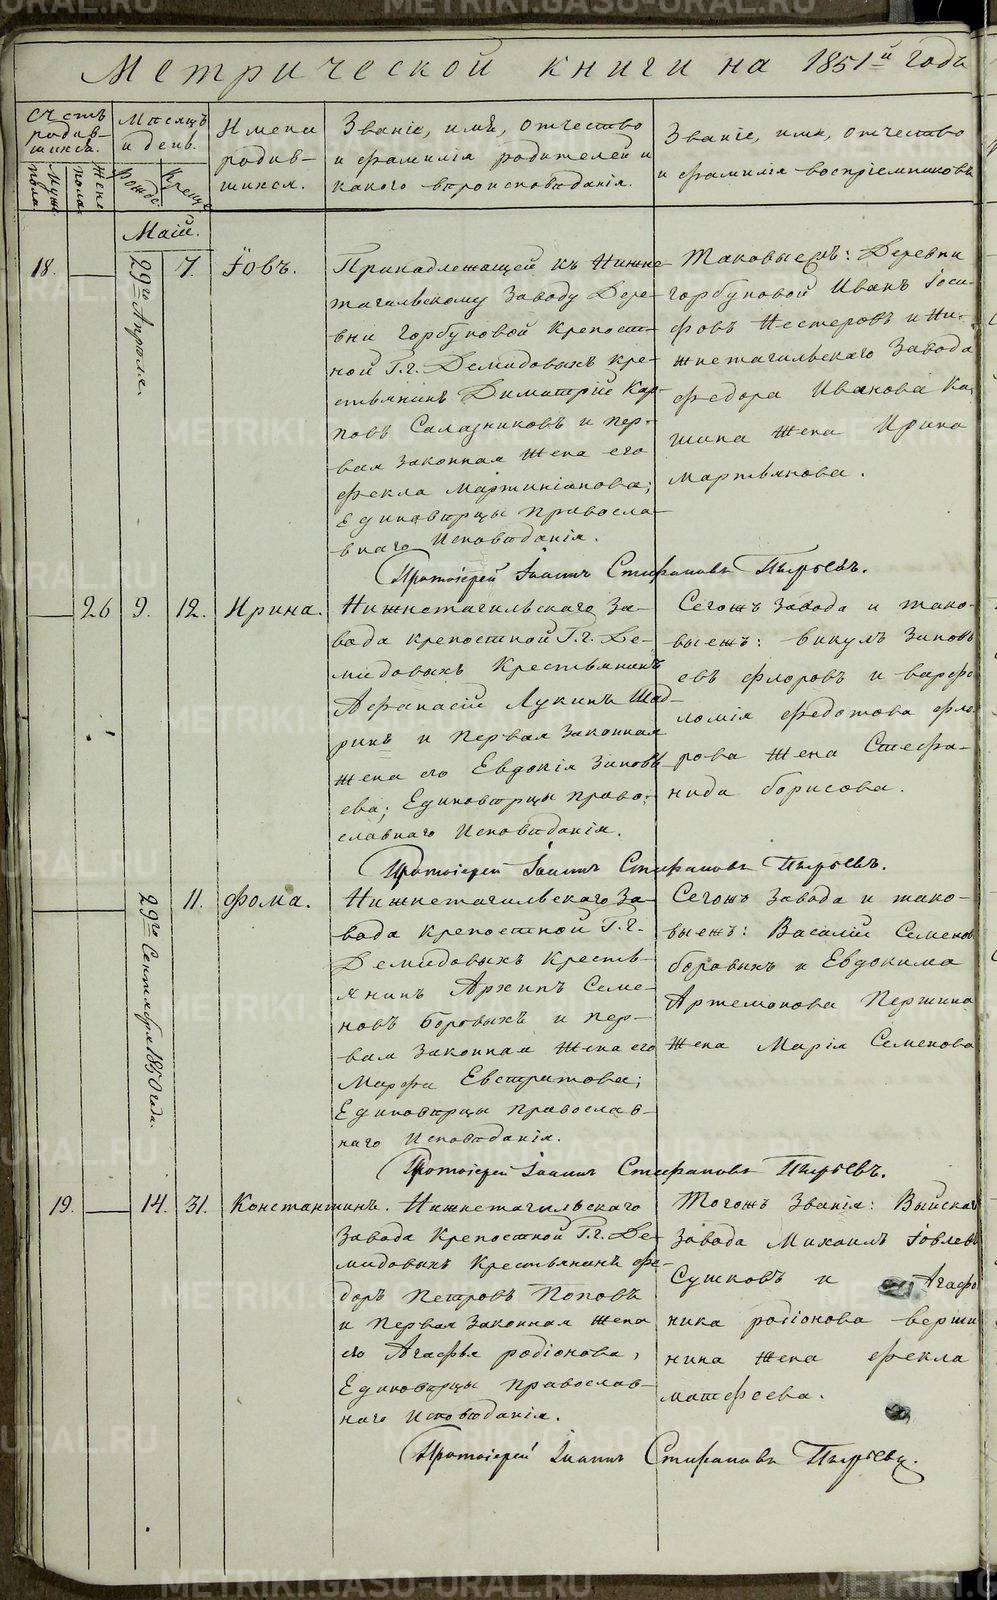 Метрической книги на 1851й годъ
Счетъ
родив-
шихся.
Мужес.
пола
Жене
пола
Месяцъ
и день.
Рожде.
Креще.
Имена
родив-
шихся.
Званіе, имя, отчество
и фамилія родителей и
какого вѣроисповѣданія.
Званіе, имя, отчество
и фамилія воспріемниковъ
Маій.
18.
29го Апреля
7.
Іовъ.
Принадлежащей къ Нижне
тагильскому Заводу Дере-
вни Горбуновой крепост-
ной Г.г. Демидовыхъ кре-
стьянинъ Димитрій Кар-
повъ Салазниковъ и пер-
вая законная жена его
Фекла Мартиніанова;
Единовѣрцы Правосла-
внаго Исповѣданія.
Таковыежъ: Деревни
Горбуновой Иванъ Іоси-
фовъ Нестеровъ и Ни-
жнетагильскаго Завода
Федора Иванова Ка
шина жена Ирина
мартьянова.
Протоіерей Іоаннъ Стефановъ Пырьевъ.
26
9.
12.
Ирина.
Нижнетагильскаго За-
вода крепостной Г.г. Де-
мидовыхъ Крестьянинъ
Афанасій Лукинъ Шад-
ринъ и Первая Законная
жена его Евдокія Зиновь
ева; Единовѣрцы право-
славнаго Исповѣданія.
Сегожъ Завода и тако-
выежъ: викулъ Зиновь
евъ Флоровъ и варфо
ломія Федотова Фло
рова жена Стефа-
нида борисова.
Протоіерей Іоаннъ Стефановъ Пырьевъ.
29го Сентября 1850 года.
11.
Фома.
Нижнетагильскаго За-
вода крепостной Г.г.
Демидовыхъ Кресть-
янинъ Архипъ Семе-
новъ боровыхъ и пер-
вая Законная жена его
Марфа Евстратова;
Единовѣрцы православ-
наго Исповѣданія.
Сегожъ Завода и тако-
выежъ: Василій Семенов
боровыхъ и Евдокима
Артемонова Першина
жена Марія Семенова
Протоіерей Іоаннъ Стефановъ Пырьевъ.
19.
14.
31.
Константинъ.
Нижнетагильскаго
Завода Крепостной Г.г. Де-
мидовыхъ Крестьянинъ Фе-
доръ Петровъ Поповъ
и Первая Законная жена
его Агафья родіонова,
Единовѣрцы Православ-
наго Исповѣданія.
Тогожъ Званія: Выйскаг
Завода Михаилъ Іовлевъ
Сушковъ и Агафо
ника родіонова верши
нина жена Фекла
матфеева.
Протоіерей Іоаннъ Стефановъ Пырьевъ.
METRIKI.GASO-URAL.RU